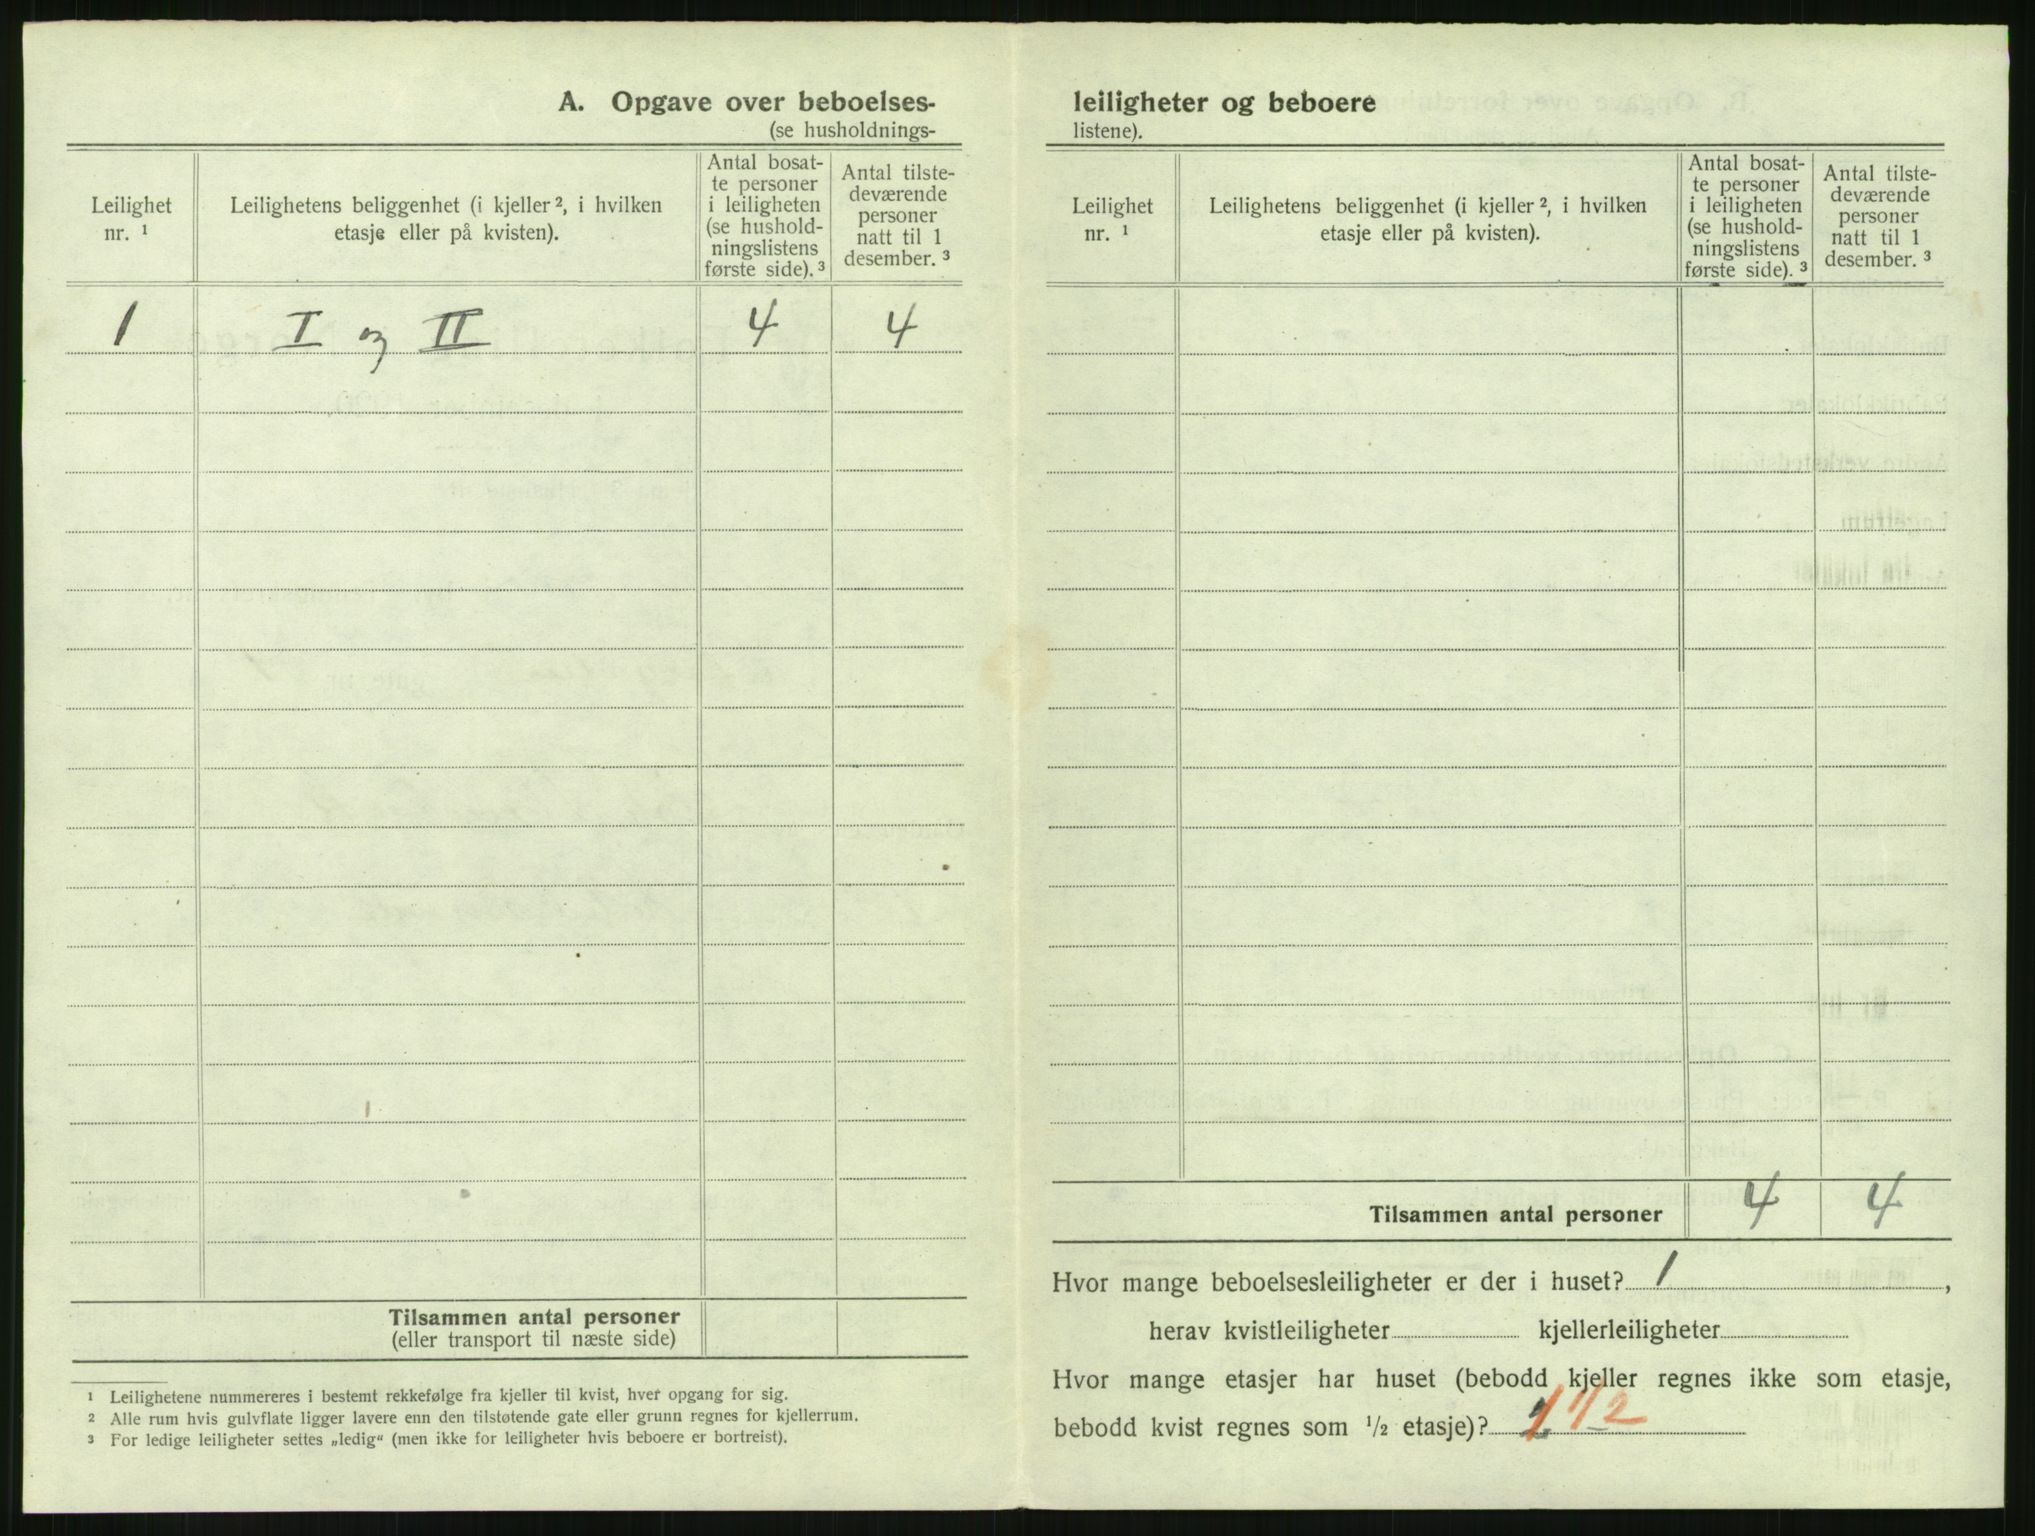 A. Opgave over beboelses-
(se husholdnings-
Leilighet
nr. 1
Leilighetens beliggenhet (i kjeller 2, i hvilken
etasje eller på kvisten).
Antal bosat-
te personer
i leiligheten
(se hushold-
ningslistens
første side). 3
Antal tilste-
deværende
personer
natt til 1
desember. 3
1 I og II 4 4
Tilsammen antal personer
(eller transport til næste side)
1 Leilighetene nummereres i bestemt rekkefølge fra kjeller til kvist, hver opgang for sig.
2 Alle rum hvis gulvflate ligger lavere enn den tilstøtende gate eller grunn regnes for kjellerrum.
3 For ledige leiligheter settes „ledig“ (men ikke for leiligheter hvis beboere er bortreist).
leiligheter og beboere
listene).
Leilighet
nr. 1
Leilighetens beliggenhet (i kjeller 2, i hvilken
etasje eller på kvisten).
Antal bosat-
te personer
i leiligheten
(se hushold-
ningslistens
første side). 3
Antal tilste-
deværende
personer
natt til 1
desember. 3
Tilsammen antal personer 4 4
Hvor mange beboelsesleiligheter er der i huset? 1,
herav kvistleiligheter kjellerleiligheter
Hvor mange etasjer har huset (bebodd kjeller regnes ikke som etasje,
bebodd kvist regnes som 1/2 etasje)? 1 1/2